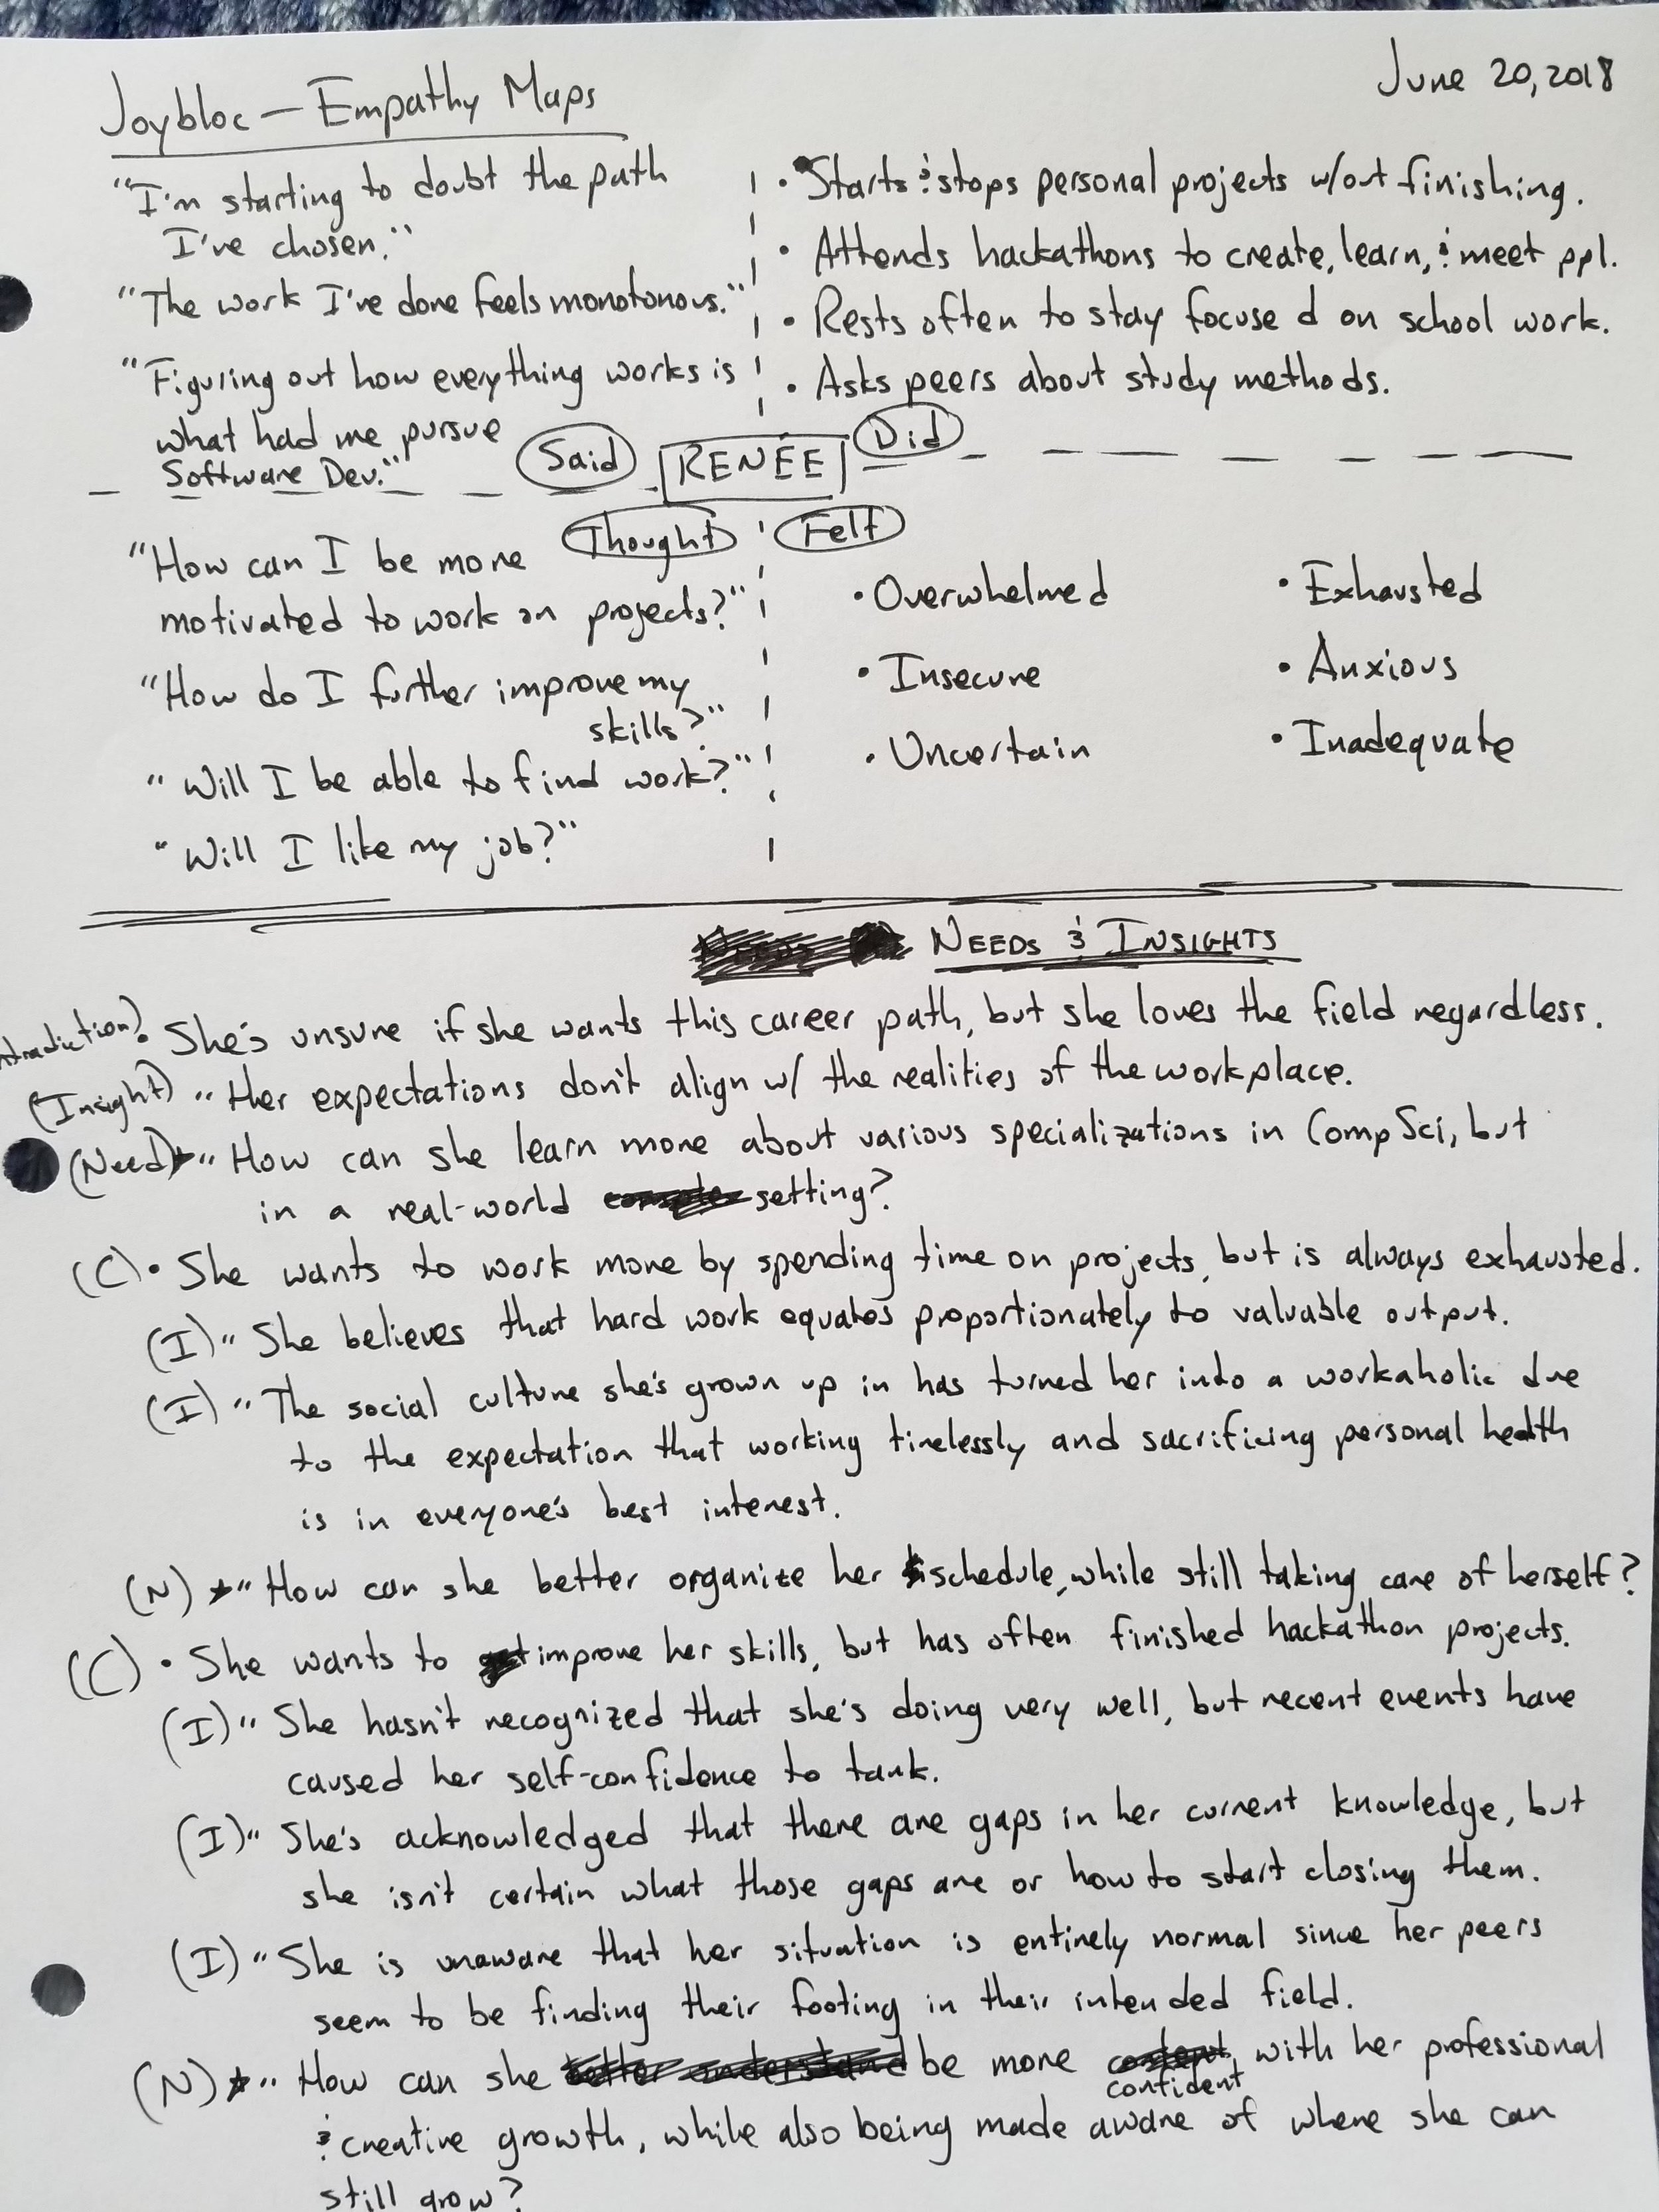 Joybloc — Empathy Maps
June 20, 2018
"I'm starting to doubt the path
I've chosen."
"The work I've done feels monotonous."
"Figuring out how everything works is
what had me pursue
Software Dev."
Said
• Starts & stops personal projects w/out finishing.
• Attends hackathons to create, learn, & meet ppl.
• Rests often to stay focused on school work.
• Asks peers about study methods.
Did
RENÉE
Thought
"How can I be more
motivated to work on projects?"
"How do I further improve my
skills?"
"Will I be able to find work?"
"Will I like my job?"
Felt
• Overwhelmed
• Exhausted
• Insecure
• Anxious
• Uncertain
• Inadequate
NEEDS & INSIGHTS
ntradiction) • She's unsure if she wants this career path, but she loves the field regardless.
(Insight) " Her expectations don't align w/ the realities of the workplace.
(Need) ★ " How can she learn more about various specializations in CompSci, but
in a real-world setting?
(C) • She wants to work more by spending time on projects, but is always exhausted.
(I) " She believes that hard work equates proportionately to valuable output.
(I) " The social culture she's grown up in has turned her into a workaholic due
to the expectation that working tirelessly and sacrificing personal health
is in everyone's best interest.
(N) ★ " How can she better organize her schedule, while still taking care of herself?
(C) • She wants to improve her skills, but has often finished hackathon projects.
(I) " She hasn't recognized that she's doing very well, but recent events have
caused her self-confidence to tank.
(I) " She's acknowledged that there are gaps in her current knowledge, but
she isn't certain what those gaps are or how to start closing them.
(I) " She is unaware that her situation is entirely normal since her peers
seem to be finding their footing in their intended field.
(N) ★ " How can she be more confident with her professional
& creative growth, while also being made aware of where she can
still grow?